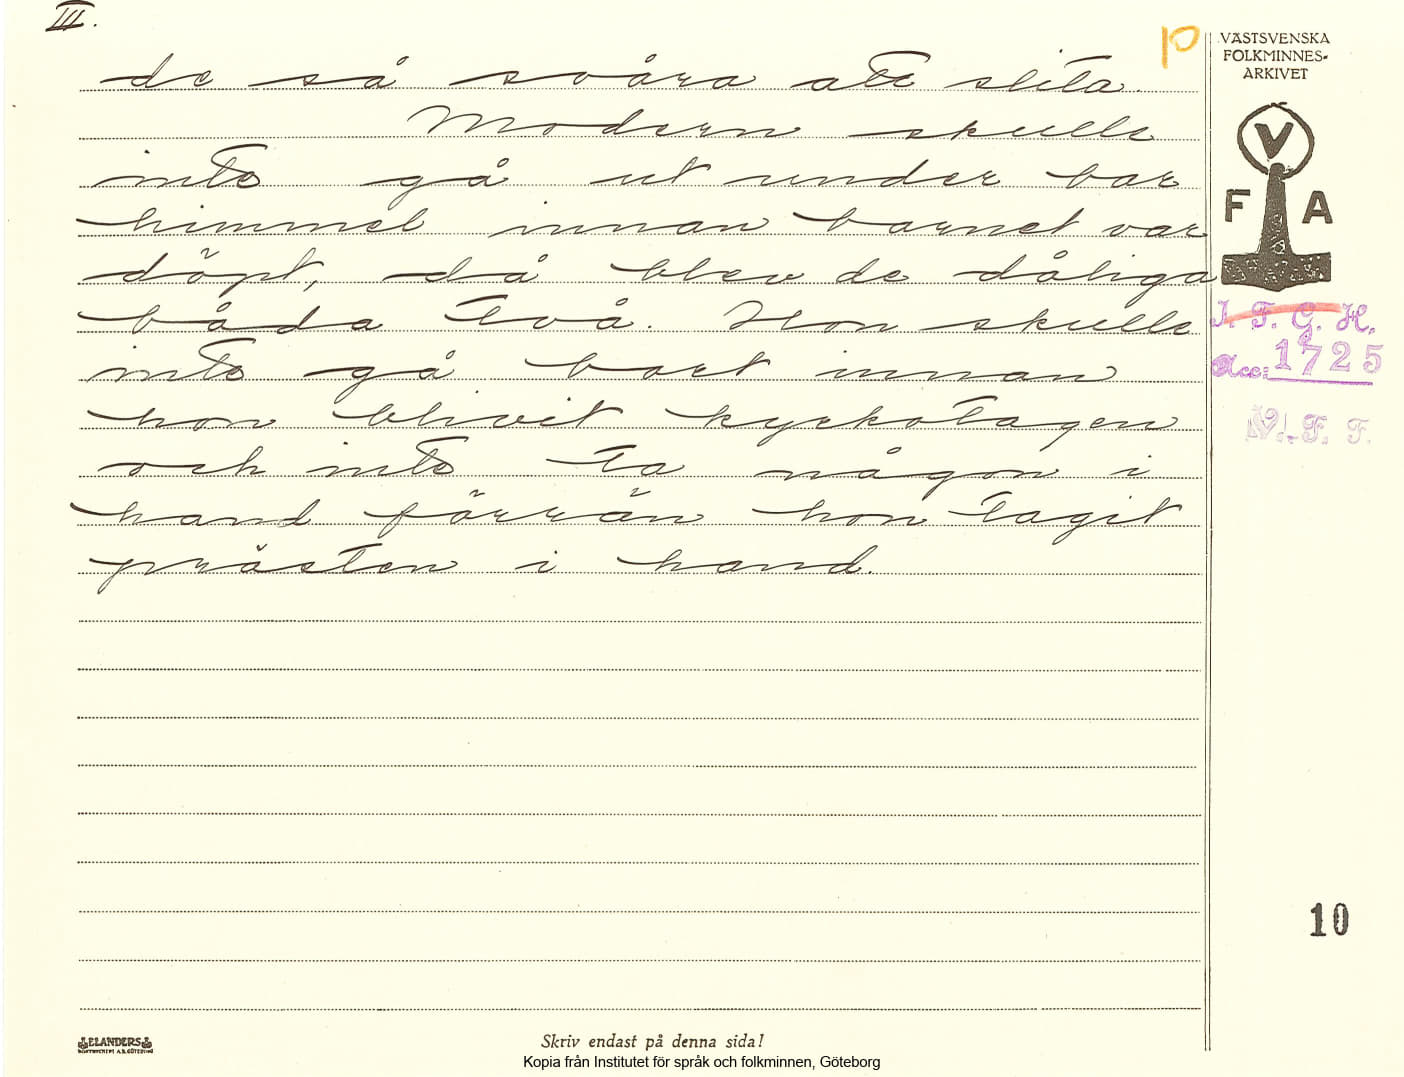 III.
p
VÄSTSVENSKA
FOLKMINNES-
ARKIVET
V
F A
I. F. G. H.
Acc: 1725
V. F. F.
de så svåra att slita.
Modern skulle
inte gå ut under bar
himmel innan barnet var
döpt, då blev de dåliga
båda två. Hon skulle
inte gå bort innan
hon blivit kyrkotagen
och inte ta någon i
hand förrän hon tagit
prästen i hand.
10
ELANDERS
Skriv endast på denna sida!
Kopia från Institutet för språk och folkminnen, Göteborg